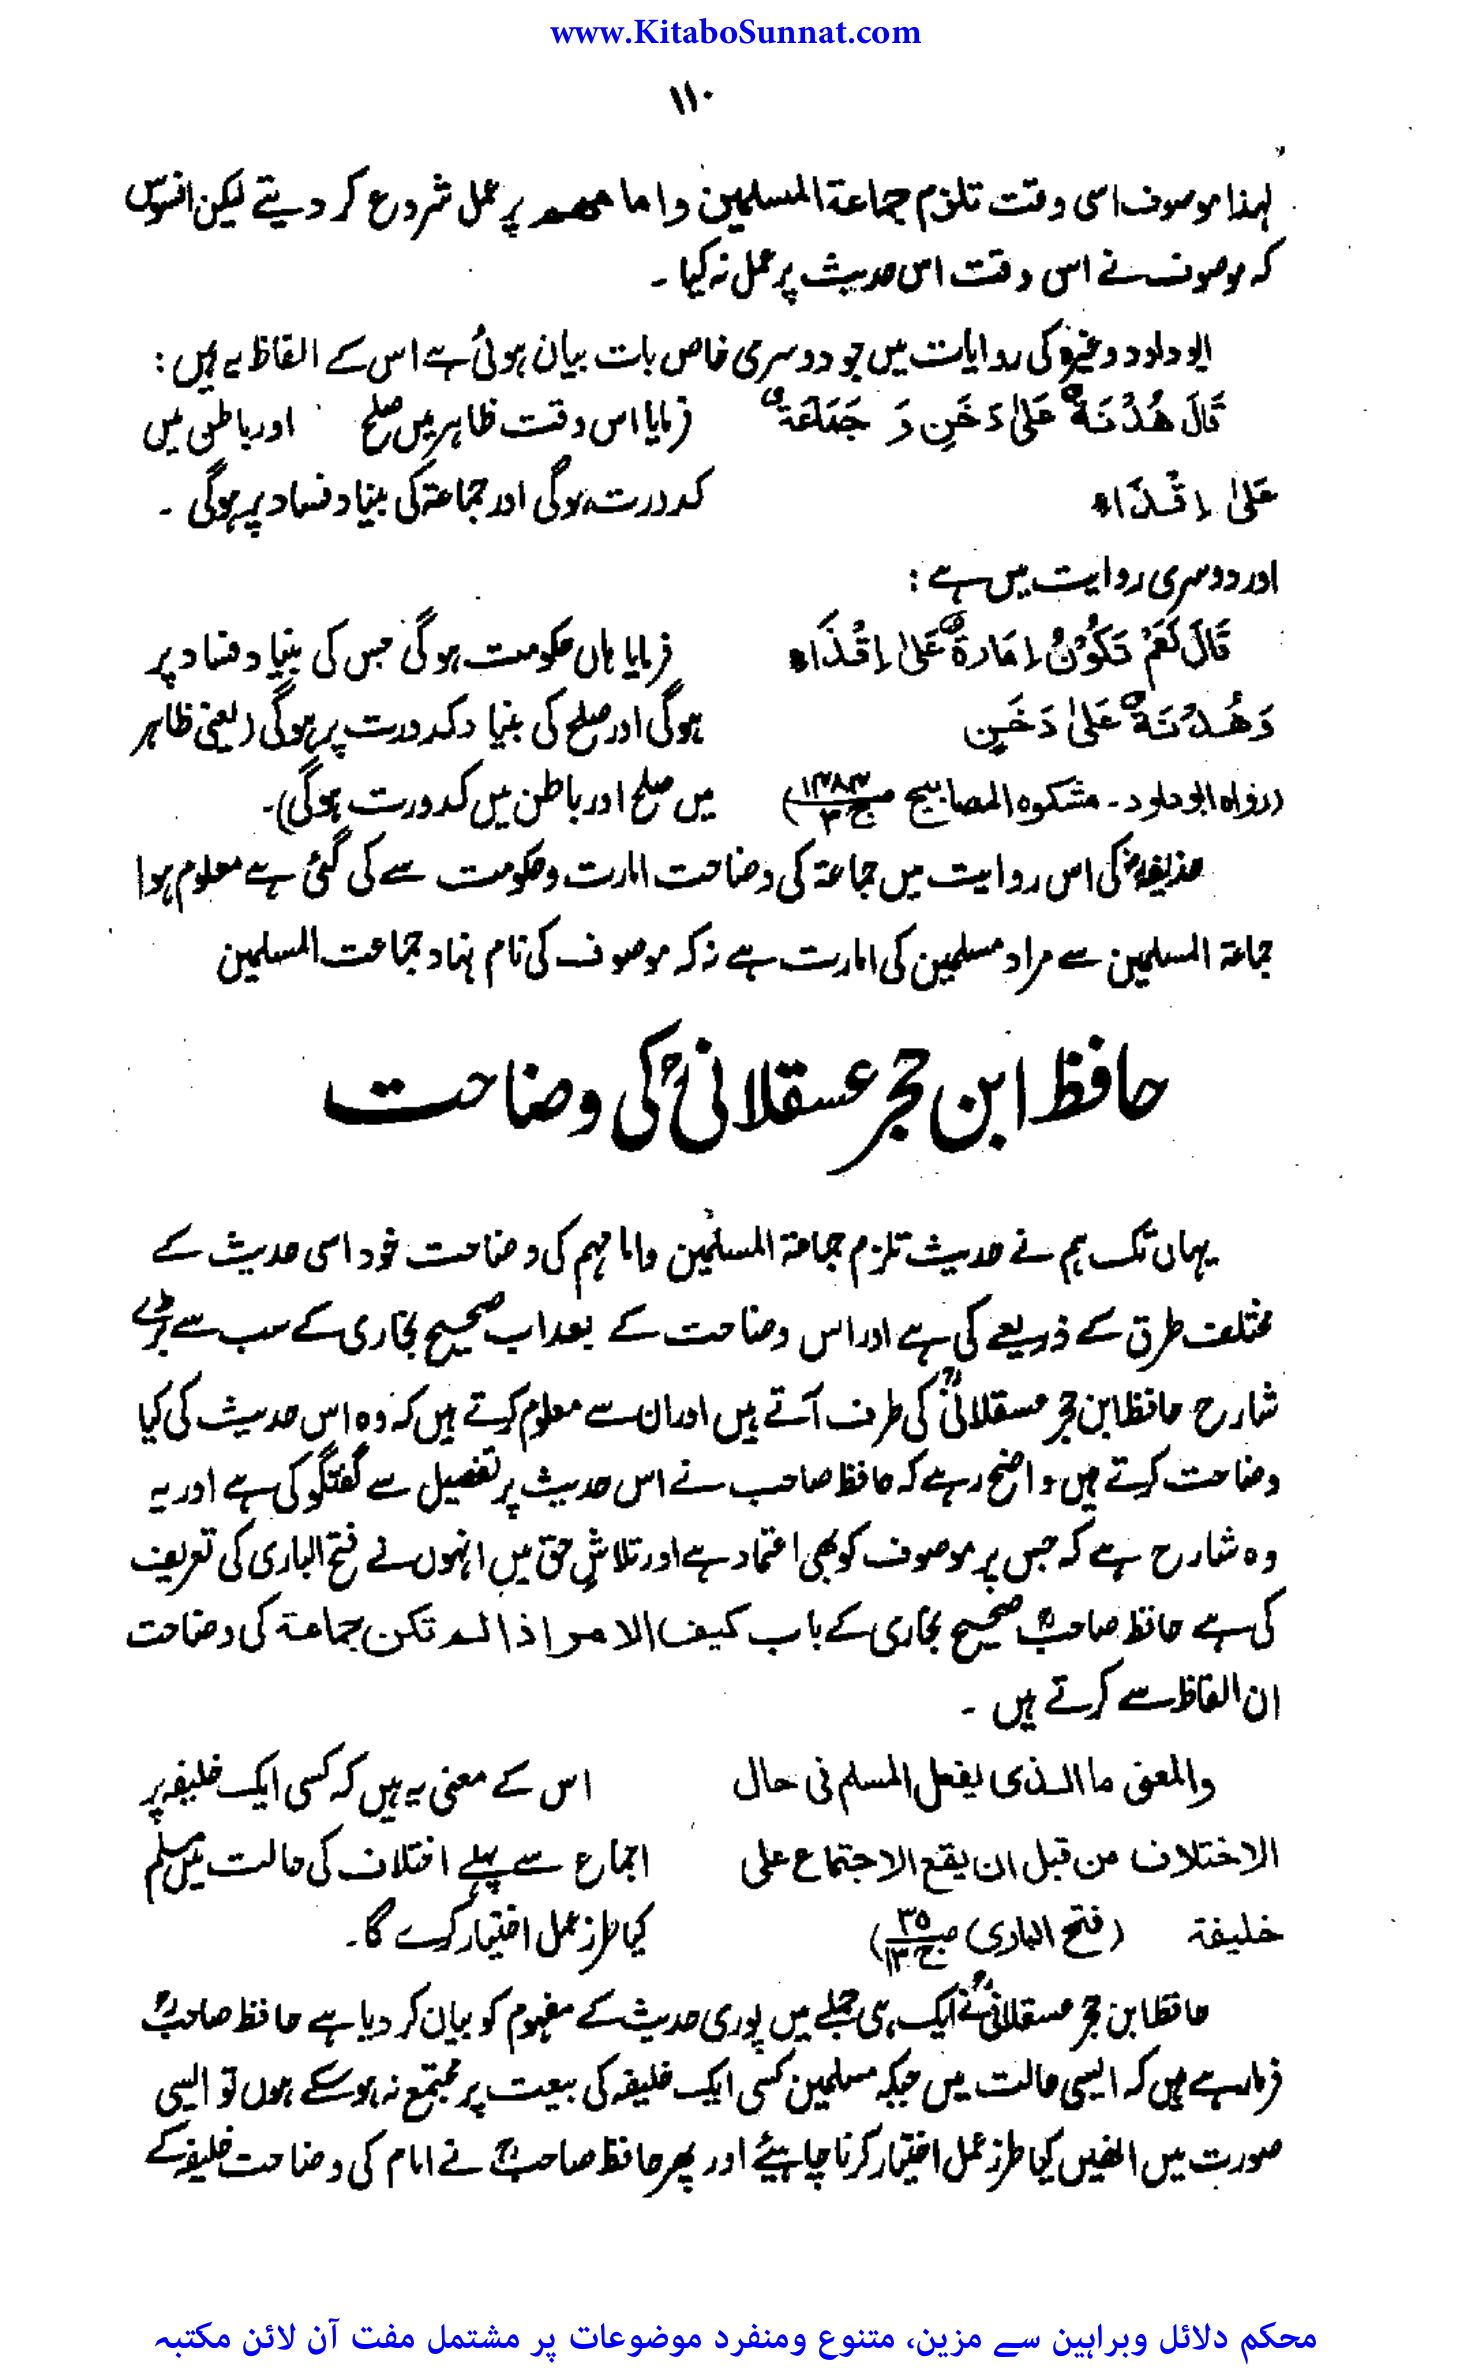 www.KitaboSunnat.com
۱۱۰
لہذا موصوف اسی وقت تلزم جماعة المسلمین وامامھم پر عمل شروع کر دیتے لیکن افسوس
کہ موصوف نے اس وقت اس حدیث پر عمل نہ کیا ۔
ابو داود وغیرہ کی روایات میں جو دوسری خاص بات بیان ہوئی ہے اس کے الفاظ یہ ہیں :
قَالَ هُدْنَةٌ عَلیٰ دَخَنٍ وَ جَمَاعَةٌ فرمایا اس وقت ظاہر میں صلح اور باطن میں
عَلیٰ اِقْذَاءٍ کدورت ہوگی اور جماعة کی بنیاد فساد پر ہوگی ۔
اور دوسری روایت میں ہے :
قَالَ نَعَمْ تَكُوْنُ اِمَارَةٌ عَلیٰ اِقْذَاءٍ فرمایا ہاں حکومت ہوگی جس کی بنیاد فساد پر
وَهُدْنَةٌ عَلیٰ دَخَنٍ ہوگی اور صلح کی بنیاد کدورت پر ہوگی (یعنی ظاہر
(رواہ ابو داود ۔ مشکوہ المصابیح ص۱۴۸۳ ج۳) میں صلح اور باطن میں کدورت ہوگی)۔
حذیفہؓ کی اس روایت میں جماعة کی وضاحت امارت وحکومت سے کی گئی ہے معلوم ہوا
جماعة المسلمین سے مراد مسلمین کی امارت ہے نہ کہ موصوف کی نام نہاد جماعت المسلمین
حافظ ابن حجر عسقلانیؒ کی وضاحت
یہاں تک ہم نے حدیث تلزم جماعة المسلمین وامامہم کی وضاحت خود اسی حدیث کے
مختلف طرق کے ذریعے کی ہے اور اس وضاحت کے بعد اب صحیح بخاری کے سب سے بڑے
شارح حافظ ابن حجر عسقلانیؒ کی طرف آتے ہیں اور ان سے معلوم کرتے ہیں کہ وہ اس حدیث کی کیا
وضاحت کرتے ہیں واضح رہے کہ حافظ صاحب نے اس حدیث پر تفصیل سے گفتگو کی ہے اور یہ
وہ شارح ہے کہ جس پر موصوف کو بھی اعتماد ہے اور تلاشِ حق میں انہوں نے فتح الباری کی تعریف
کی ہے حافظ صاحبؒ صحیح بخاری کے باب کیف الامر اذا لم تکن جماعة کی وضاحت
ان الفاظ سے کرتے ہیں ۔
والمعنی ما الذی یفعل المسلم فی حال اس کے معنی یہ ہیں کہ کسی ایک خلیفہ پر
الاختلاف من قبل ان یقع الاجتماع علی اجماع سے پہلے اختلاف کی حالت میں مسلم
خلیفة (فتح الباری ص۳۵ ج۱۳) کیا طرز عمل اختیار کرے گا۔
حافظ ابن حجر عسقلانیؒ نے ایک ہی جملے میں پوری حدیث کے مفہوم کو بیان کر دیا ہے حافظ صاحبؒ
فرما رہے ہیں کہ ایسی حالت میں جبکہ مسلمین کسی ایک خلیفہ کی بیعت پر مجتمع نہ ہو سکے ہوں تو ایسی
صورت میں انھیں کیا طرز عمل اختیار کرنا چاہیئے اور پھر حافظ صاحبؒ نے امام کی وضاحت خلیفہ کے
محکم دلائل وبراہین سے مزین، متنوع ومنفرد موضوعات پر مشتمل مفت آن لائن مکتبہ